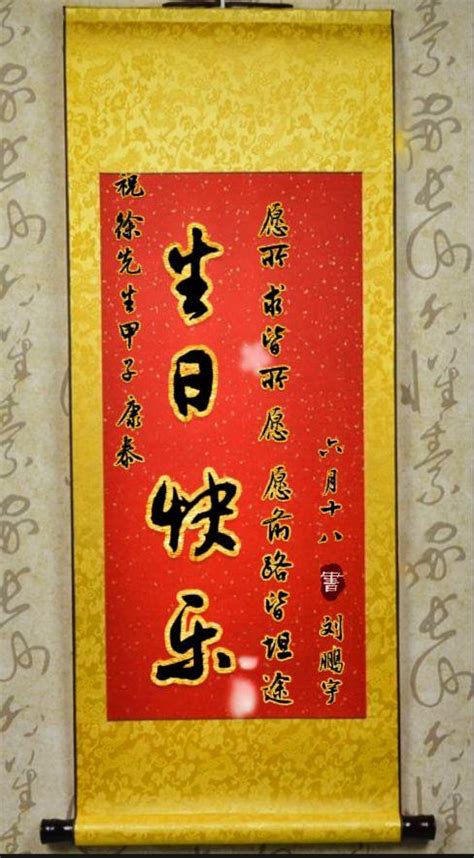 祝徐先生甲子康泰
生日快乐
愿所求皆所愿 愿前路皆坦途
六月十八 書 刘鹏宇